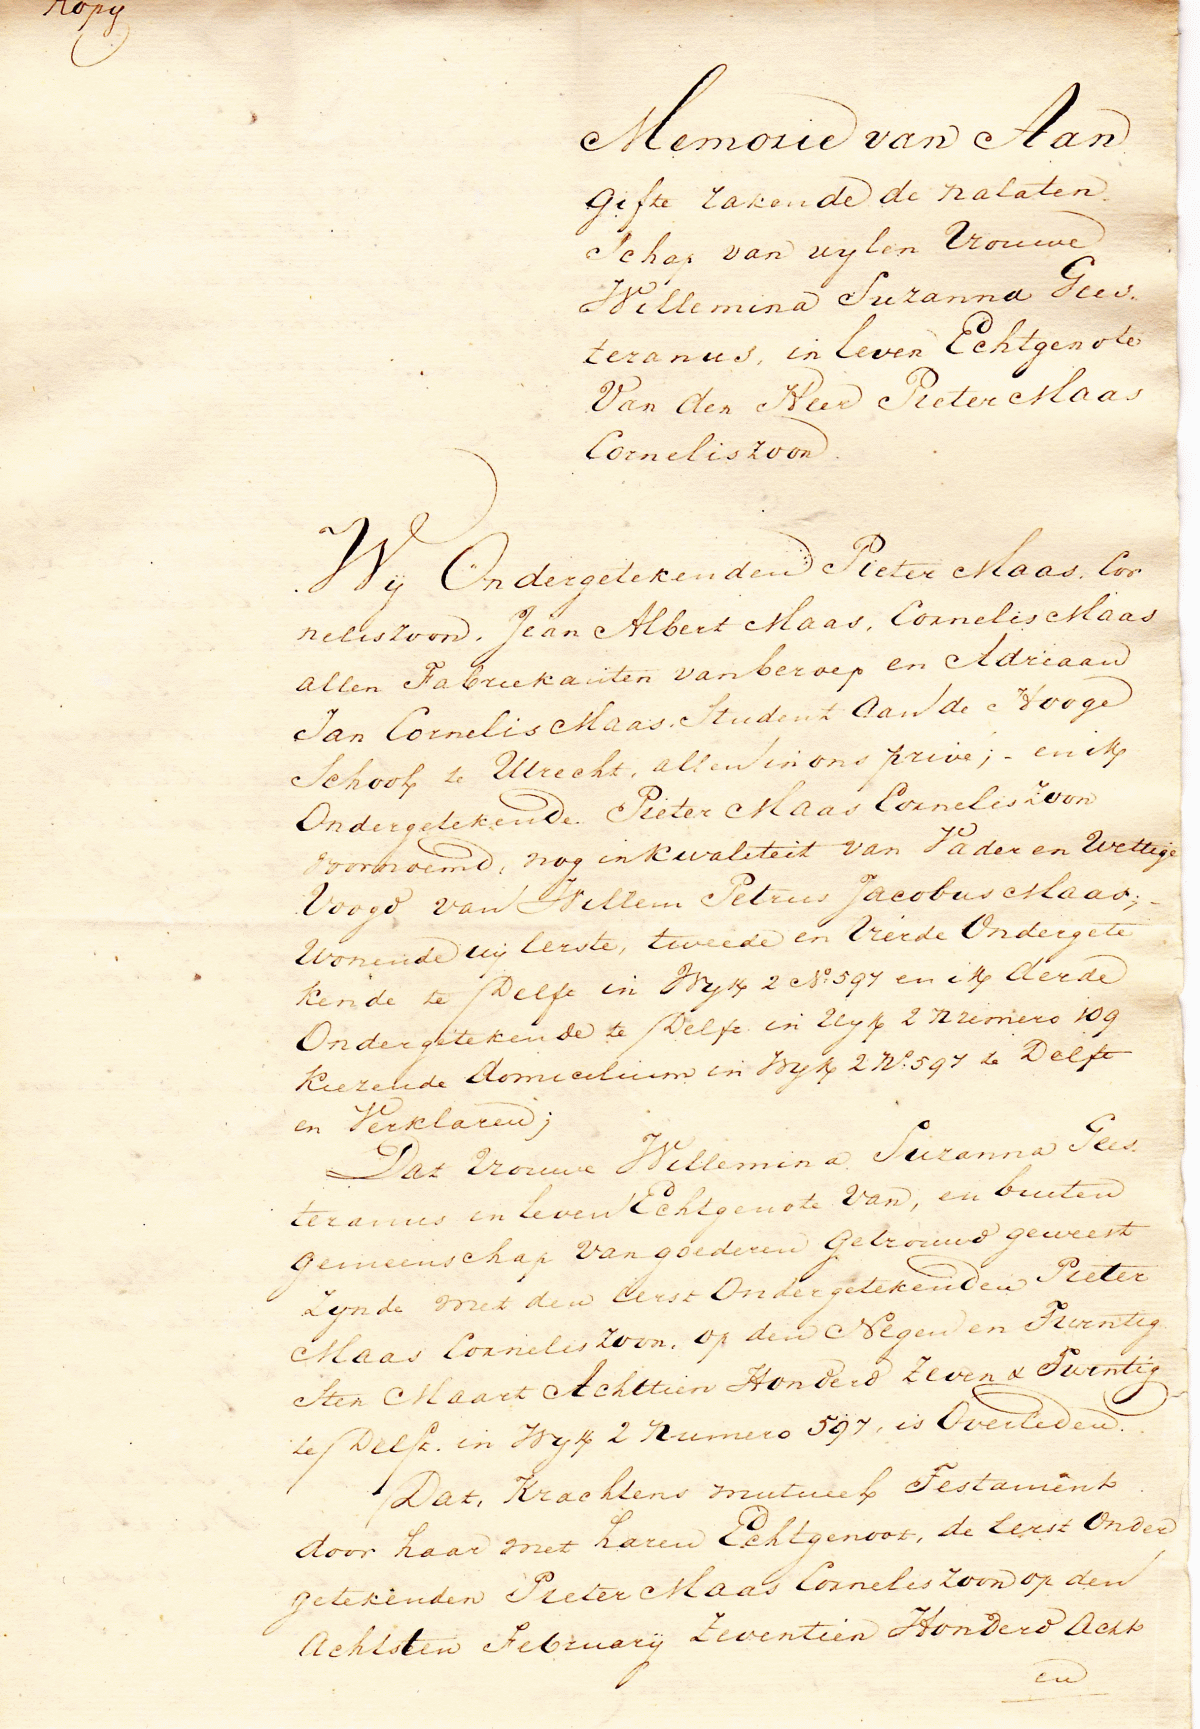 Kopy
Memorie van Aan
gifte rakende de nalaten
schap van wylen Vrouwe
Willemina Suzanna Gees-
teranus, in leven Echtgenote
Van den Heer Pieter Maas
Corneliszoon.
Wij Ondergetekenden Pieter Maas. Cor
neliszoon. Jean Albert Maas, Cornelis Maas
allen Fabriekanten van beroep en Adriaan
Jan Cornelis Maas. Student aan de Hooge
School te Utrecht, allen in ons privé; - en ik
Ondergetekende. Pieter Maas Corneliszoon
voornoemd, nog in kwaliteit van Vader en Wettige
Voogd van Willem Petrus Jacobus Maas; -
Wonende wy Eerste, tweede en Vierde Ondergete
kende te Delft in Wyk 2 No. 597 en ik derde
Ondergetekende te Delft in Wyk 2 Numero 109
kiezende domicilium in Wyk 2 No. 597 te Delft
en Verklaren;
Dat Vrouwe Willemina Suzanna Gees
teranus in leven Echtgenote van, en buiten
gemeenschap van goederen getrouwd geweest
zynde met den Eerst Ondergetekenden Pieter
Maas Corneliszoon. op den Negen en Twintig
sten Maart Achttien Honderd Zeven & Twintig
te Delft. in Wyk 2 Numero 597, is Overleden.
Dat, Krachtens mutueel Testament
door haar met haren Echtgenoot, de Eerst Onder
getekenden Pieter Maas Corneliszoon op den
Achtsten February Zeventien Honderd Acht
en